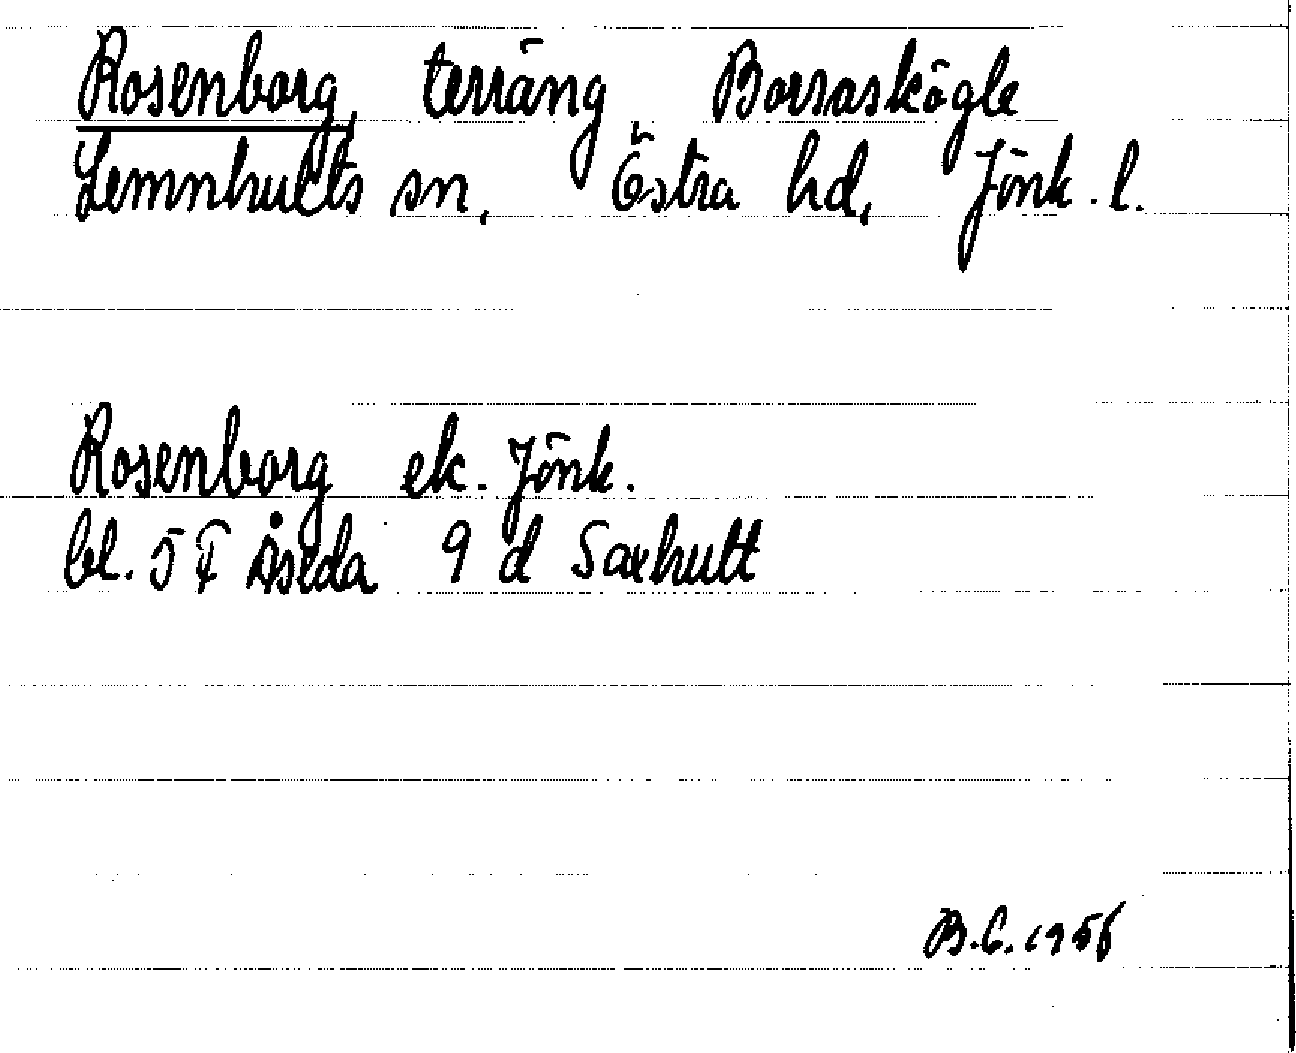 Rosenborg, terräng Borraskögle
Lemnhults sn, Östra hd, Jönk. l.
Rosenborg ek. Jönk.
bl. 5 F Åseda 9 d Saxhult
B.C. 1956